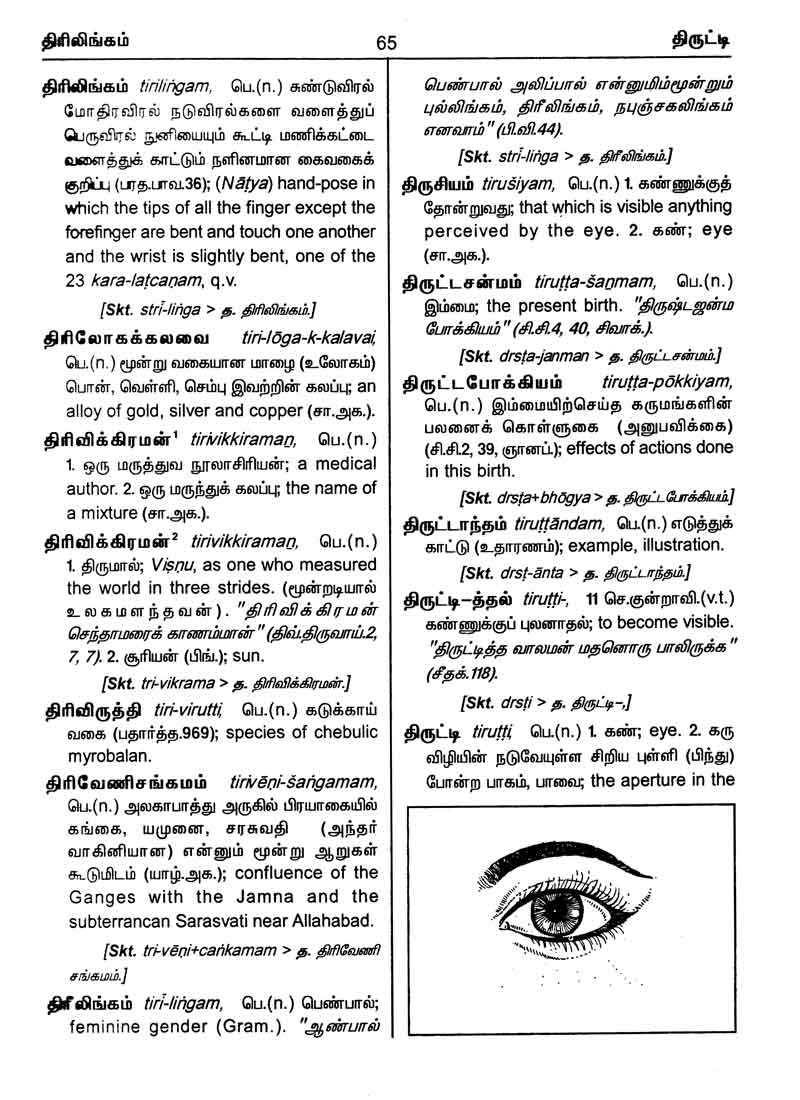 திரிலிங்கம்
65
திருட்டி
திரிலிங்கம் tiriliṅgam, பெ.(n.) சுண்டுவிரல்
மோதிரவிரல் நடுவிரல்களை வளைத்துப்
பெருவிரல் நுனியையும் கூட்டி மணிக்கட்டை
வளைத்துக் காட்டும் நளினமான கைவகைக்
குறிப்பு (பரத.பாவ.36); (Nāṭya) hand-pose in
which the tips of all the finger except the
forefinger are bent and touch one another
and the wrist is slightly bent, one of the
23 kara-laṭcaṇam, q.v.
[Skt. strī-liṅga > த. திரிலிங்கம்.]
திரிலோகக்கலவை tiri-lōga-k-kalavai,
பெ.(n.) மூன்று வகையான மாழை (உலோகம்)
பொன், வெள்ளி, செம்பு இவற்றின் கலப்பு; an
alloy of gold, silver and copper (சா.அக.).
திரிவிக்கிரமன்¹ tirivikkiramaṉ, பெ.(n.)
1. ஒரு மருத்துவ நூலாசிரியன்; a medical
author. 2. ஒரு மருந்துக் கலப்பு; the name of
a mixture (சா.அக.).
திரிவிக்கிரமன்² tirivikkiramaṉ, பெ.(n.)
1. திருமால்; Viṣṇu, as one who measured
the world in three strides. (மூன்றடியால்
உலகமளந்தவன்). "திரிவிக்கிரமன்
செந்தாமரைக் காணம்மான்" (திவ்.திருவாய்.2,
7, 7). 2. சூரியன் (பிங்.); sun.
[Skt. tri-vikrama > த. திரிவிக்கிரமன்.]
திரிவிருத்தி tiri-virutti, பெ.(n.) கடுக்காய்
வகை (பதார்த்த.969); species of chebulic
myrobalan.
திரிவேணிசங்கமம் tirivēṇi-šaṅgamam,
பெ.(n.) அலகாபாத்து அருகில் பிரயாகையில்
கங்கை, யமுனை, சரசுவதி (அந்தர்
வாகினியான) என்னும் மூன்று ஆறுகள்
கூடுமிடம் (யாழ்.அக.); confluence of the
Ganges with the Jamna and the
subterrancan Sarasvati near Allahabad.
[Skt. tri-vēṇi+caṅkamam > த. திரிவேணி
சங்கமம்.]
திரீலிங்கம் tirī-liṅgam, பெ.(n.) பெண்பால்;
feminine gender (Gram.). "ஆண்பால்
பெண்பால் அலிப்பால் என்னுமிம்மூன்றும்
புல்லிங்கம், திரீலிங்கம், நபுஞ்சகலிங்கம்
எனவாம்" (பி.வி.44).
[Skt. strī-liṅga > த. திரீலிங்கம்.]
திருசியம் tirušiyam, பெ.(n.) 1. கண்ணுக்குத்
தோன்றுவது; that which is visible anything
perceived by the eye. 2. கண்; eye
(சா.அக.).
திருட்டசன்மம் tiruṭṭa-šaṉmam, பெ.(n.)
இம்மை; the present birth. "திருஷ்டஜன்ம
போக்கியம்" (சி.சி.4, 40, சிவாக்.).
[Skt. drsṭa-janman > த. திருட்டசன்மம்.]
திருட்டபோக்கியம் tiruṭṭa-pōkkiyam,
பெ.(n.) இம்மையிற்செய்த கருமங்களின்
பலனைக் கொள்ளுகை (அனுபவிக்கை)
(சி.சி.2, 39, ஞானப்.); effects of actions done
in this birth.
[Skt. drsṭa+bhōgya > த. திருட்டபோக்கியம்.]
திருட்டாந்தம் tiruṭṭāndam, பெ.(n.) எடுத்துக்
காட்டு (உதாரணம்); example, illustration.
[Skt. drsṭ-ānta > த. திருட்டாந்தம்.]
திருட்டி-த்தல் tiruṭṭi-, 11 செ.குன்றாவி.(v.t.)
கண்ணுக்குப் புலனாதல்; to become visible.
"திருட்டித்த வாலமன் மதனொரு பாலிருக்க"
(சீதக்.118).
[Skt. drsṭi > த. திருட்டி-,]
திருட்டி tiruṭṭi, பெ.(n.) 1. கண்; eye. 2. கரு
விழியின் நடுவேயுள்ள சிறிய புள்ளி (பிந்து)
போன்ற பாகம், பாவை; the aperture in the